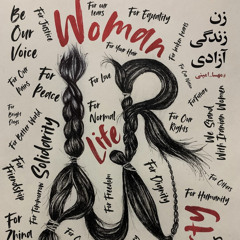 For our
tears
Woman
For Equality
Be
Our
Voice
For Justice
For Your Hair
زن
زندگی
آزادی
مهسا امینی
For Our
For
Peace
For Love
For Future
For
Bright
Days
For Better World
Solidarity
For
Normal
Life
For Our
Rights
We Stand
With Iranian Women
For Tomorrow
For Freedom
For Dignity
For Others
For Humanity
For
Zhina
rty